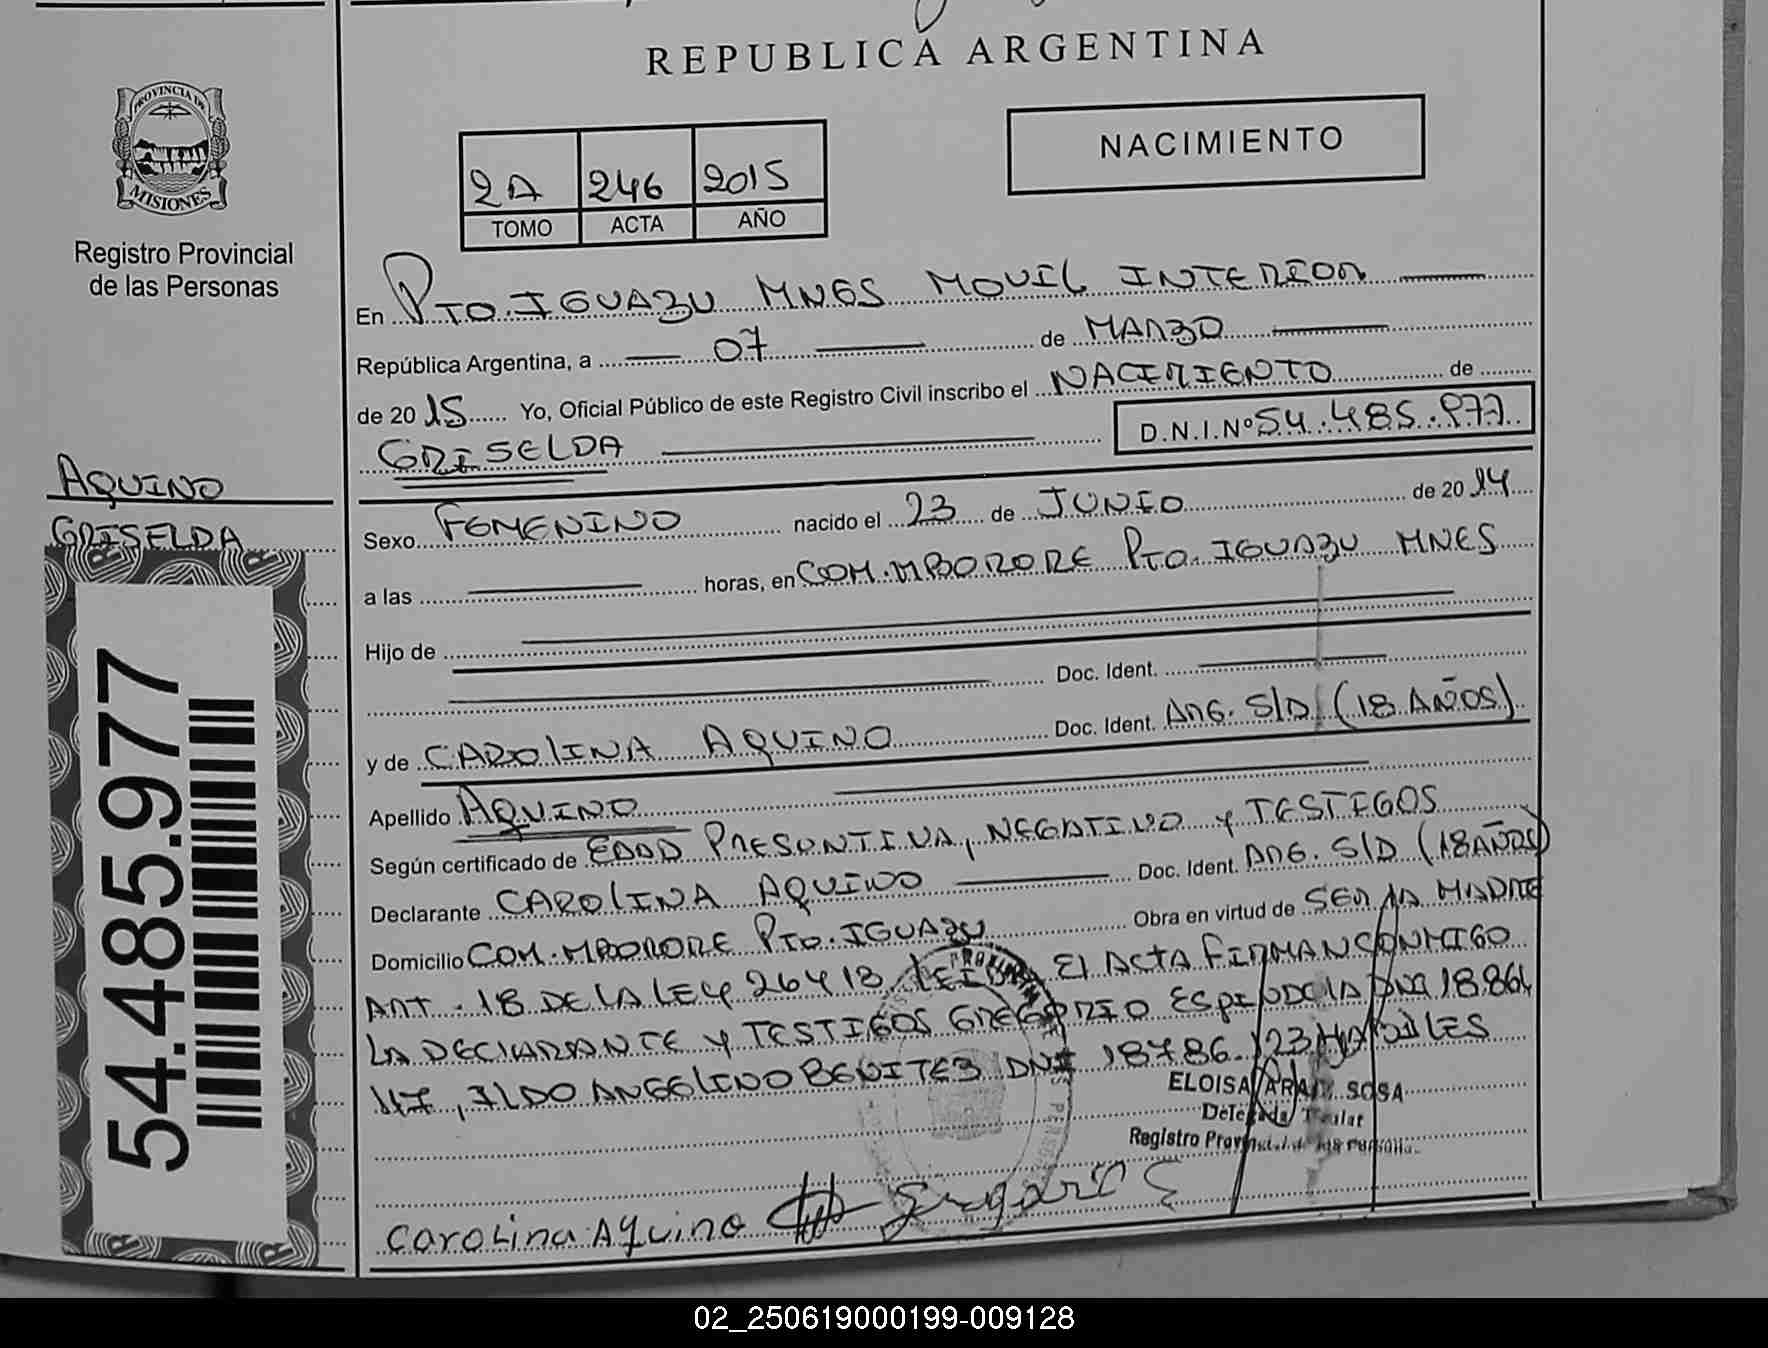 REPUBLICA ARGENTINA
PROVINCIA DE
MISIONES
Registro Provincial
de las Personas
NACIMIENTO
2A 246 2015
TOMO ACTA AÑO
En PTO. IGUAZU MNES MOVIL INTERIOR
República Argentina, a 07 de MARZO
de 2015 Yo, Oficial Público de este Registro Civil inscribo el NACIMIENTO de
GRISELDA D.N.I.Nº 54.485.977
AQUINO
GRISELDA
54.485.977
Sexo FEMENINO nacido el 23 de JUNIO de 2014
a las horas, en COM. MBORORE PTO. IGUAZU MNES
Hijo de
Doc. Ident.
y de CAROLINA AQUINO Doc. Ident. ARG. S/D (18 AÑOS)
Apellido AQUINO
Según certificado de EDAD PRESUNTIVA, NEGATIVO Y TESTIGOS
Declarante CAROLINA AQUINO Doc. Ident. ARG. S/D (18 AÑOS)
Domicilio COM. MBORORE PTO. IGUAZU Obra en virtud de SER LA MADRE
ART. 18 DE LA LEY 26413 LEIDA El ACTA FIRMAN CONMIGO
LA DECLARANTE Y TESTIGOS GREGORIO ESPINDOLA DNI 18.864
117, ILDO ANGELINO BENITEZ DNI 18786.123 HABILES
ELOISA SOSA
Delegada Titular
Registro Provincial de las Personas
Carolina Aquino
02_250619000199-009128